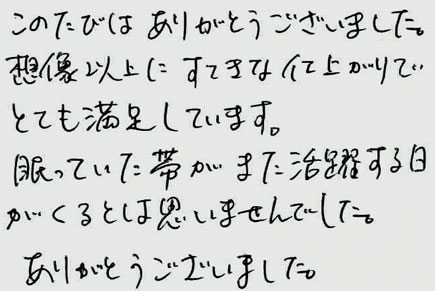 このたびは ありがとうございました。
想像以上に すてきな 仕上がりで
とても満足しています。
眠っていた帯が また活躍する日
がくるとは思いませんでした。
ありがとうございました。